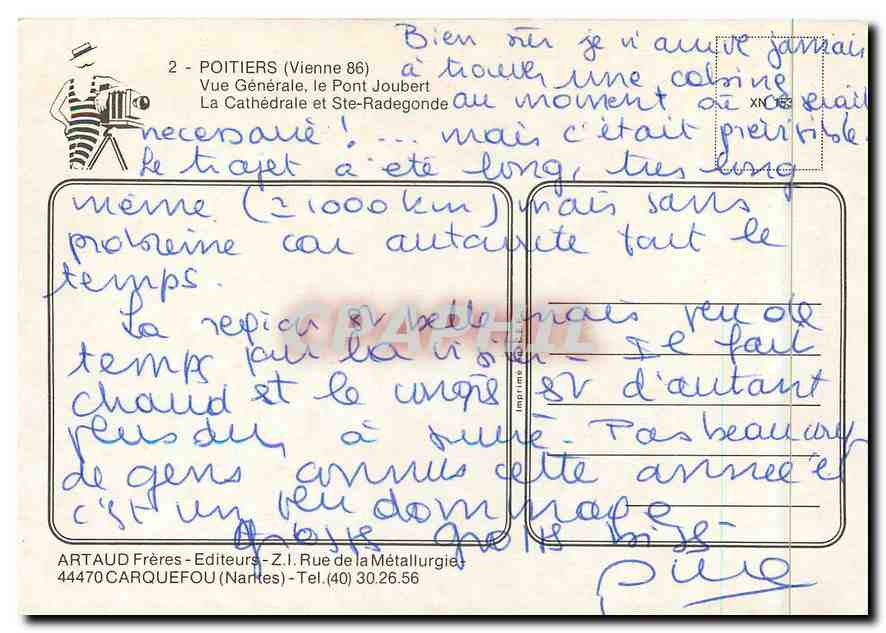 Bien sûr je n'arrive jamais
à trouver une cabine
au moment où ce serait
necessaire !... mais c'était prévisible.
Le trajet a été long, tres long
même (≃ 1000 km) mais sans
probleme car autoroute tout le
temps.
La region est belle mais peu de
temps pour la visiter - Il fait
chaud et le congrès est d'autant
plus dur à suivre. Pas beaucoup
de gens connus cette année et
c'est un peu dommage
grosses grosses bises
2 - POITIERS (Vienne 86)
Vue Générale, le Pont Joubert
La Cathédrale et Ste-Radegonde
XN 153
CPAPHIL
Imprimé
ARTAUD Frères - Editeurs - Z.I. Rue de la Métallurgie
44470 CARQUEFOU (Nantes) - Tel. (40) 30.26.56